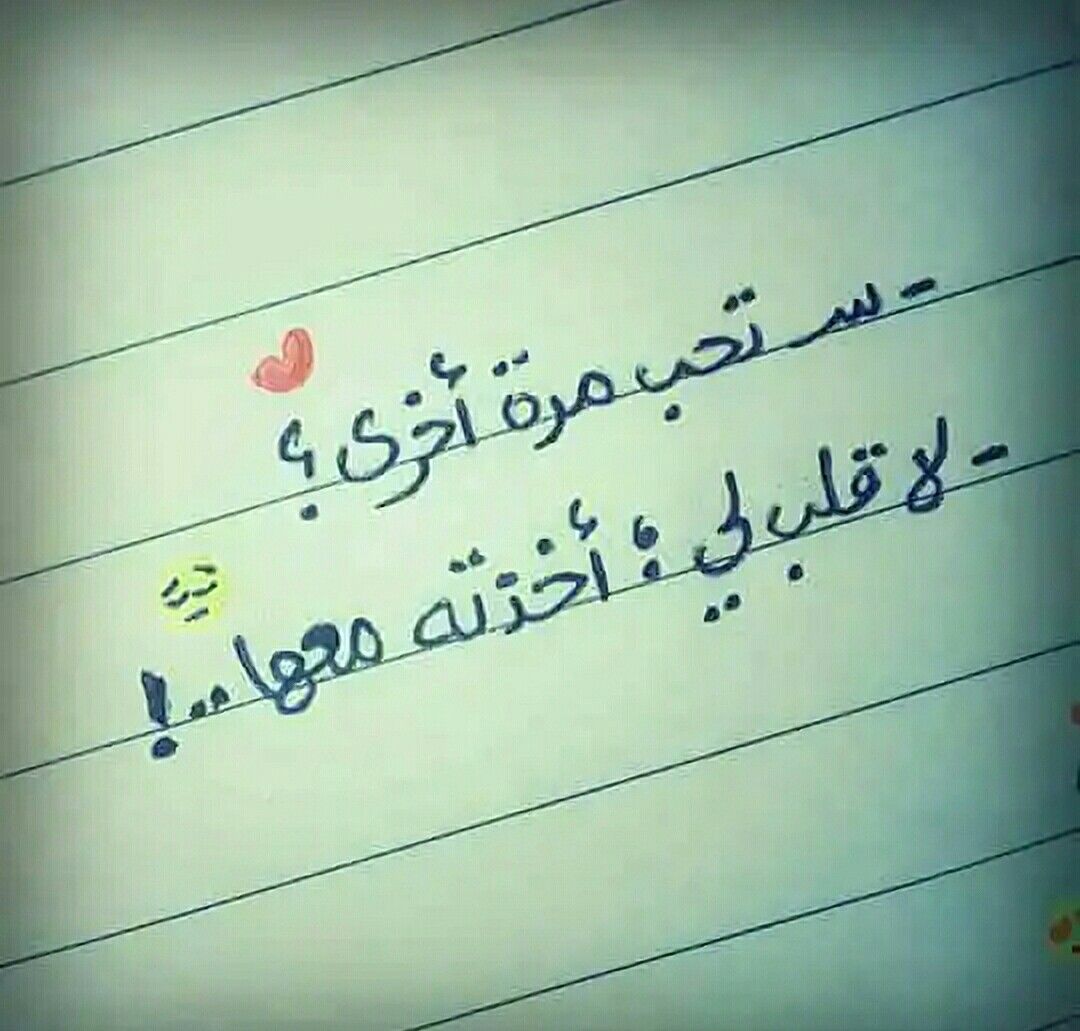 - ستحب مرة أخرى ؟
- لا قلب لي ؛ أخذته معها..!